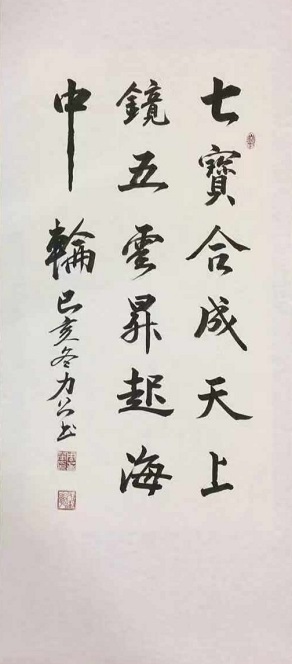 七寶合成天上
鏡五雲昇起海
中輪
己亥冬力公书